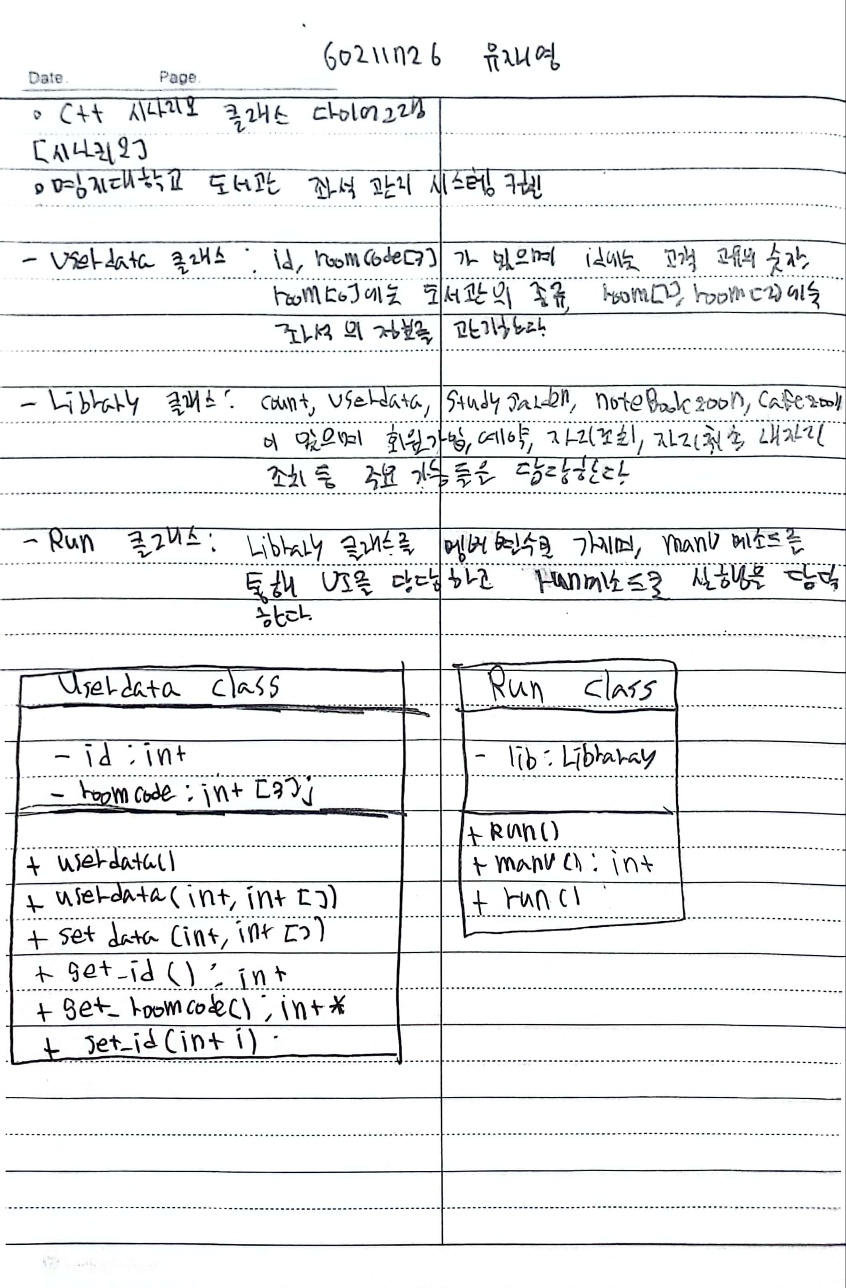 60211726 유재영
Date. Page.
◦ C++ 시나리오 클래스 다이어그램
[시나리오]
◦ 명지대학교 도서관 좌석 관리 시스템 구현
- Userdata 클래스 : id, roomcode[3] 가 있으며 id에는 고객 고유의 숫자,
room[0]에는 도서관의 종류, room[1], room[2]에는
좌석의 정보를 관리한다
- Library 클래스 : count, userdata, study garden, noteBookzoon, cafezoon
이 있으며 회원가입, 예약, 자리조회, 자리취소 내자리
조회 등 주요 기능들을 담당한다
- Run 클래스 : Library 클래스를 멤버 변수로 가지며, manu 메소드를
통해 UI를 담당하고 run메소드로 실행을 담당
한다.
Userdata class
- id : int
- roomcode : int [3];
+ userdata()
+ userdata(int, int [])
+ set data (int, int [])
+ get_id () : int
+ get_roomcode() : int *
+ set_id(int i)
Run class
- lib : Libraray
+ Run()
+ manu() : int
+ run()